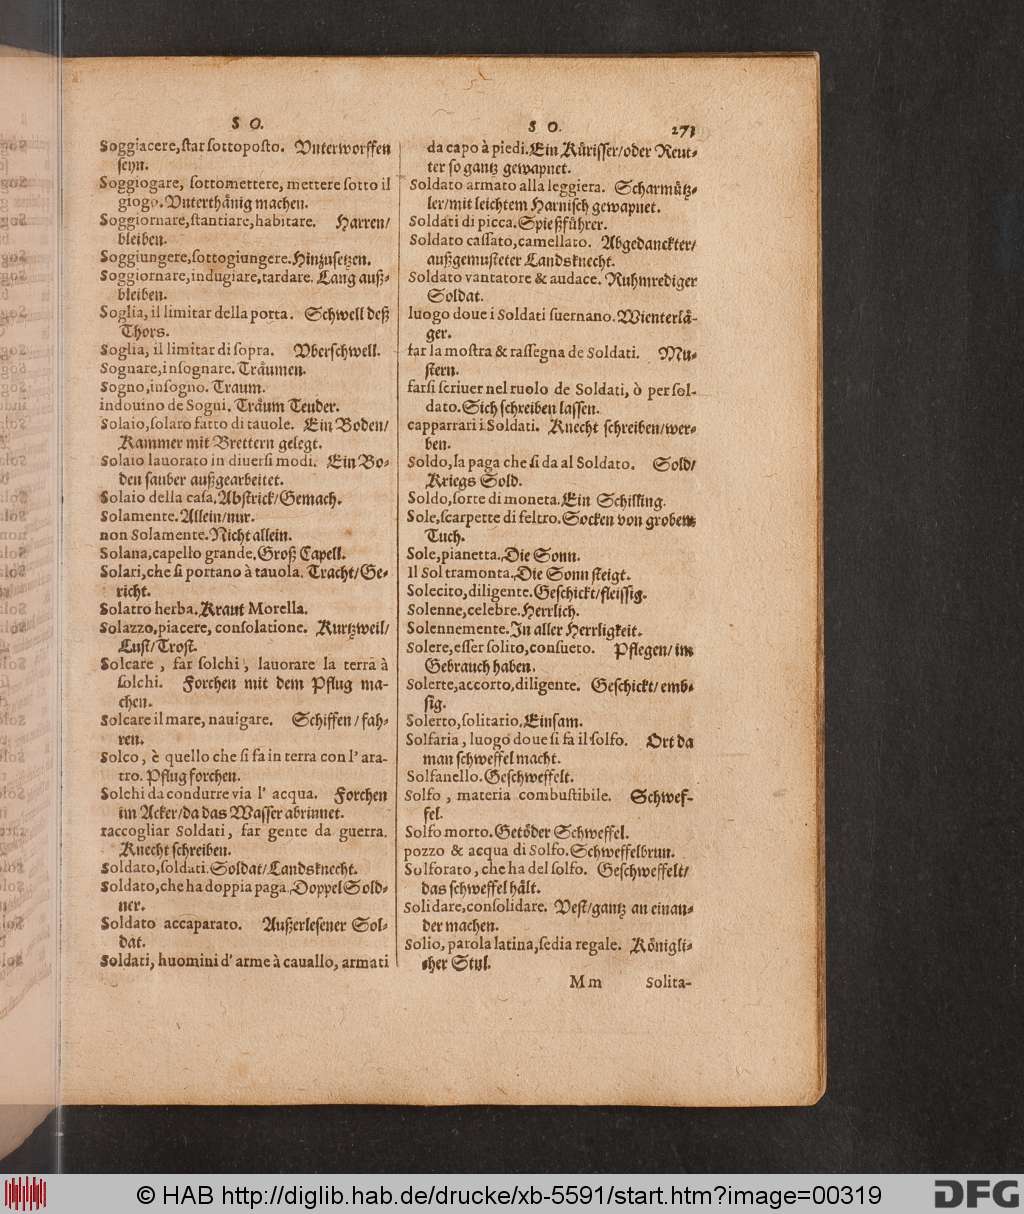 S O.
Soggiacere, star sottoposto. Vnterworffen
seyn.
Soggiogare, sottomettere, mettere sotto il
giogo. Vnterthånig machen.
Soggiornare, stantiare, habitare. Harren/
bleiben.
Soggiungere, sottogiungere. Hinzusetzen.
Soggiornare, indugiare, tardare. Lang auß-
bleiben.
Soglia, il limitar della porta. Schwell deß
Thors.
Soglia, il limitar di sopra. Vberschwell.
Sognare, insognare. Tråumen.
Sogno, insogno. Traum.
indouino de Sogni. Tråum Teuder.
Solaio, solaro fatto di tauole. Ein Boden/
Kammer mit Brettern gelegt.
Solaio lauorato in diuersi modi. Ein Bo-
den sauber außgearbeitet.
Solaio della casa. Abstrick/Gemach.
Solamente. Allein/nur.
non Solamente. Nicht allein.
Solana, capello grande. Groß Capell.
Solari, che si portano à tauola. Tracht/Ge-
richt.
Solatro herba. Kraut Morella.
Solazzo, piacere, consolatione. Kurtzweil/
Lust/Trost.
Solcare, far solchi, lauorare la terra à
solchi. Forchen mit dem Pflug ma-
chen.
Solcare il mare, nauigare. Schiffen/fah-
ren.
Solco, è quello che si fa in terra con l' ara-
tro. Pflug forchen.
Solchi da condurre via l' acqua. Forchen
im Acker/da das Wasser abrinnet.
raccogliar Soldati, far gente da guerra.
Knecht schreiben.
Soldato, soldati. Soldat/Landsknecht.
Soldato, che ha doppia paga. Doppel Sold-
ner.
Soldato accaparato. Außerlesener Sol-
dat.
Soldati, huomini d' arme à cauallo, armati
S O. 273
da capo à piedi. Ein Kůrisser/oder Reut-
ter so gantz gewapnet.
Soldato armato alla leggiera. Scharmůtz-
ler/mit leichtem Harnisch gewapnet.
Soldati di picca. Spießfůhrer.
Soldato cassato, camellato. Abgedanckter/
außgemusteter Landsknecht.
Soldato vantatore & audace. Ruhmrediger
Soldat.
luogo doue i Soldati suernano. Wienterlå-
ger.
far la mostra & rassegna de Soldati. Mu-
stern.
farsi scriuer nel ruolo de Soldati, ò per sol-
dato. Sich schreiben lassen.
capparrari i Soldati. Knecht schreiben/wer-
ben.
Soldo, la paga che si da al Soldato. Sold/
Kriegs Sold.
Soldo, sorte di moneta. Ein Schilling.
Sole, scarpette di feltro. Socken von grobem
Tuch.
Sole, pianetta. Die Sonn.
Il Sol tramonta. Die Sonn steigt.
Solecito, diligente. Geschickt/fleissig.
Solenne, celebre. Herrlich.
Solennemente. In aller Herrligkeit.
Solere, esser solito, consueto. Pflegen/im
Gebrauch haben.
Solerte, accorto, diligente. Geschickt/emb-
sig.
Solerto, solitario. Einsam.
Solfaria, luogo doue si fa il solfo. Ort da
man schweffel macht.
Solfanello. Geschweffelt.
Solfo, materia combustibile. Schwef-
fel.
Solfo morto. Getőder Schweffel.
pozzo & acqua di Solfo. Schweffelbrun.
Solforato, che ha del solfo. Geschweffelt/
das schweffel hålt.
Solidare, consolidare. Vest/gantz an einan-
der machen.
Solio, parola latina, sedia regale. Kőnigli-
cher Stul.
M m Solita-
© HAB http://diglib.hab.de/drucke/xb-5591/start.htm?image=00319
DFG